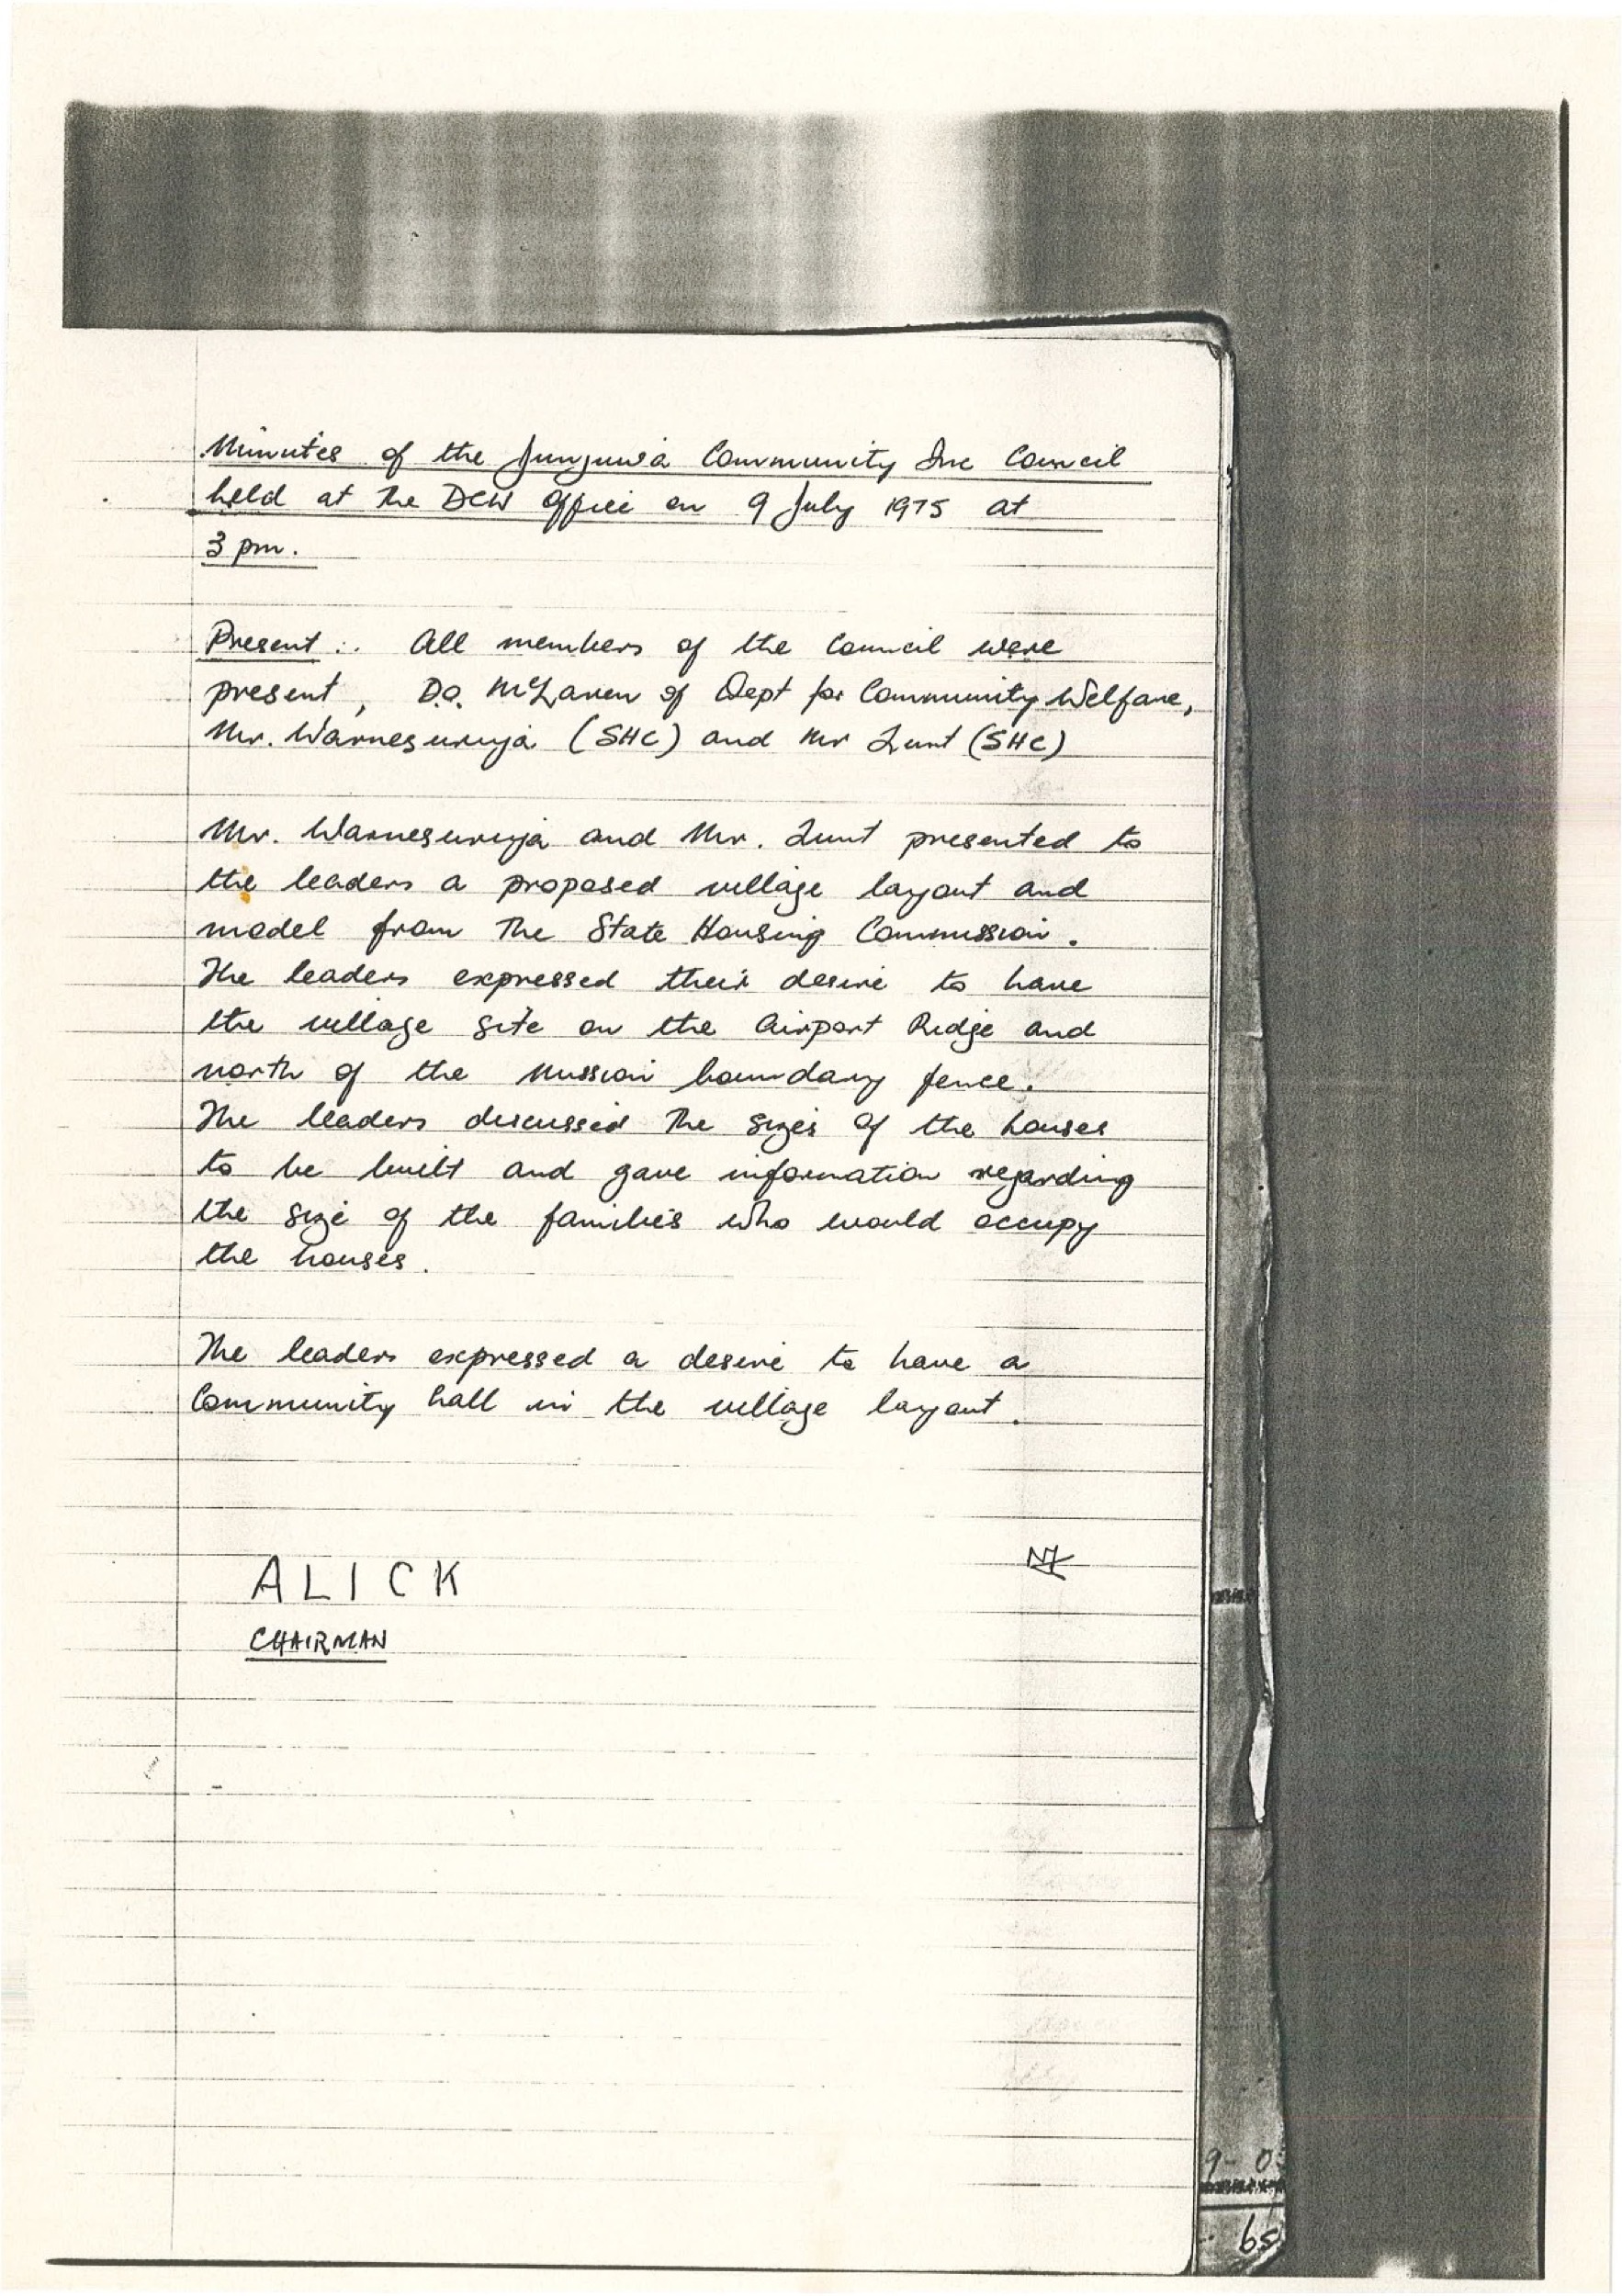 Minutes of the Junjuwa Community Inc Council
held at the DCW Office on 9 July 1975 at
3 pm.
Present :. All members of the Council were
present, D.O. McLaren of Dept for Community Welfare,
Mr. Warnesuruja (SHC) and Mr Lunt (SHC)
Mr. Warnesuruja and Mr. Lunt presented to
the leaders a proposed village layout and
model from the State Housing Commission.
The leaders expressed their desire to have
the village site on the Airport Ridge and
north of the mission boundary fence.
The leaders discussed the sizes of the houses
to be built and gave information regarding
the size of the families who would occupy
the houses.
The leaders expressed a desire to have a
Community hall in the village layout.
ALICK
CHAIRMAN
9- 0
65